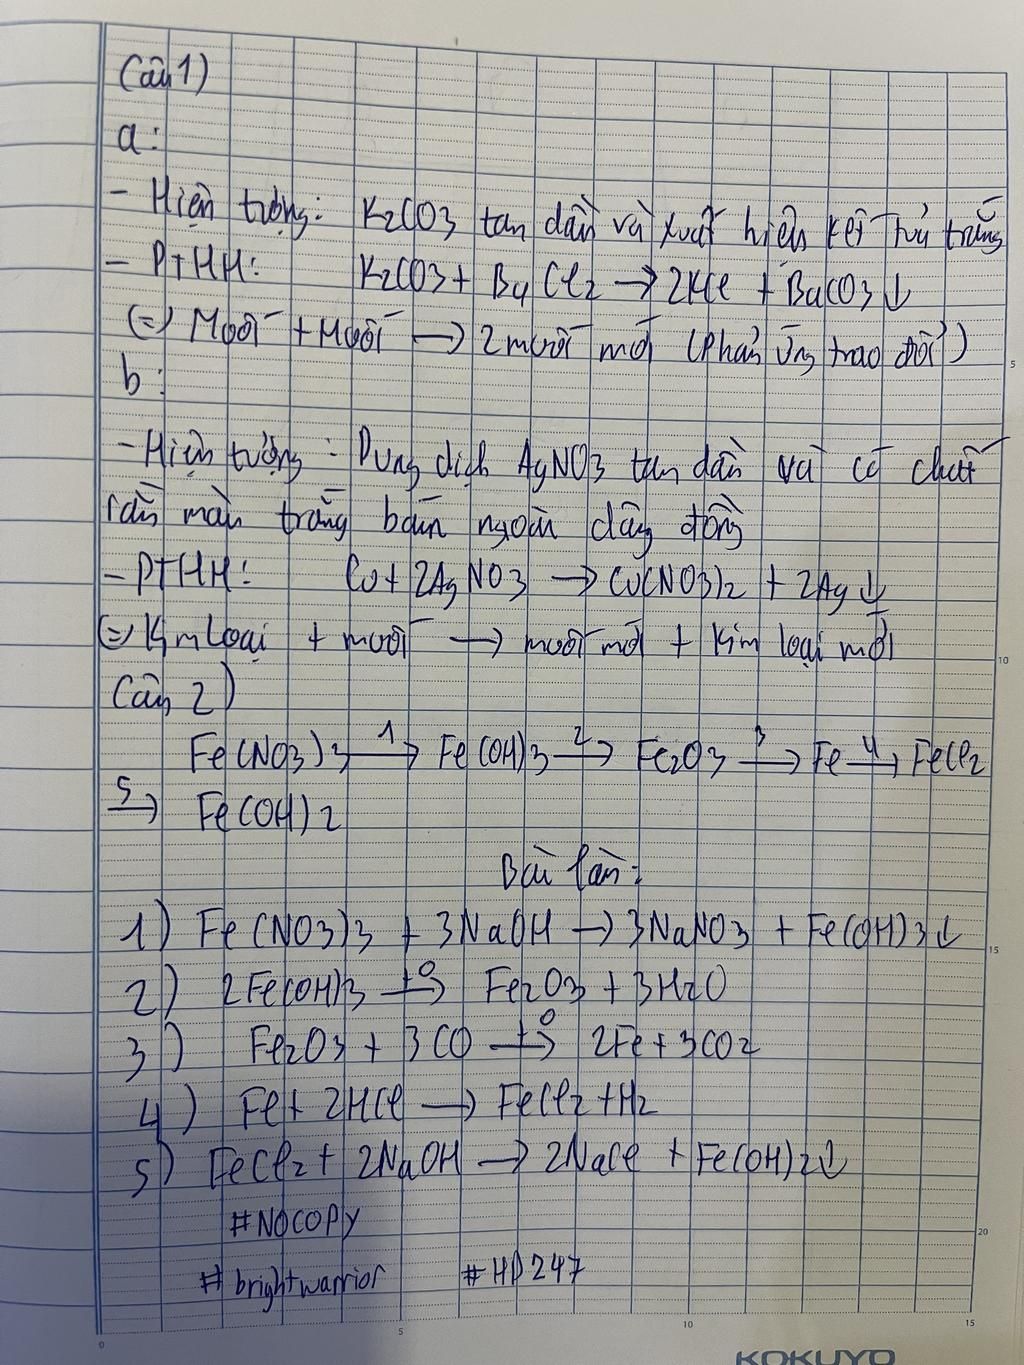 Câu 1)
a:
- Hiện tượng: K2CO3 tan dần và xuất hiện kết tủa trắng
- PTHH: K2CO3 + BaCl2 → 2KCl + BaCO3↓
(=) Muối + Muối → 2 muối mới (Phản ứng trao đổi)
5
b:
- Hiện tượng: Dung dịch AgNO3 tan dần và có chất
rắn màu trắng bám ngoài dây đồng
- PTHH: Cu + 2AgNO3 → Cu(NO3)2 + 2Ag↓
(=) Kim loại + muối → muối mới + Kim loại mới
10
Câu 2)
Fe(NO3)3 1→ Fe(OH)3 2→ Fe2O3 3→ Fe 4→ FeCl2
5→ Fe(OH)2
Bài làm:
1) Fe(NO3)3 + 3NaOH → 3NaNO3 + Fe(OH)3↓
15
2) 2Fe(OH)3 t°→ Fe2O3 + 3H2O
3) Fe2O3 + 3CO t°→ 2Fe + 3CO2
4) Fe + 2HCl → FeCl2 + H2
5) FeCl2 + 2NaOH → 2NaCl + Fe(OH)2↓
#NOCOPY
20
#brightwarrior #HD247
0 5 10 15
KOKUYO